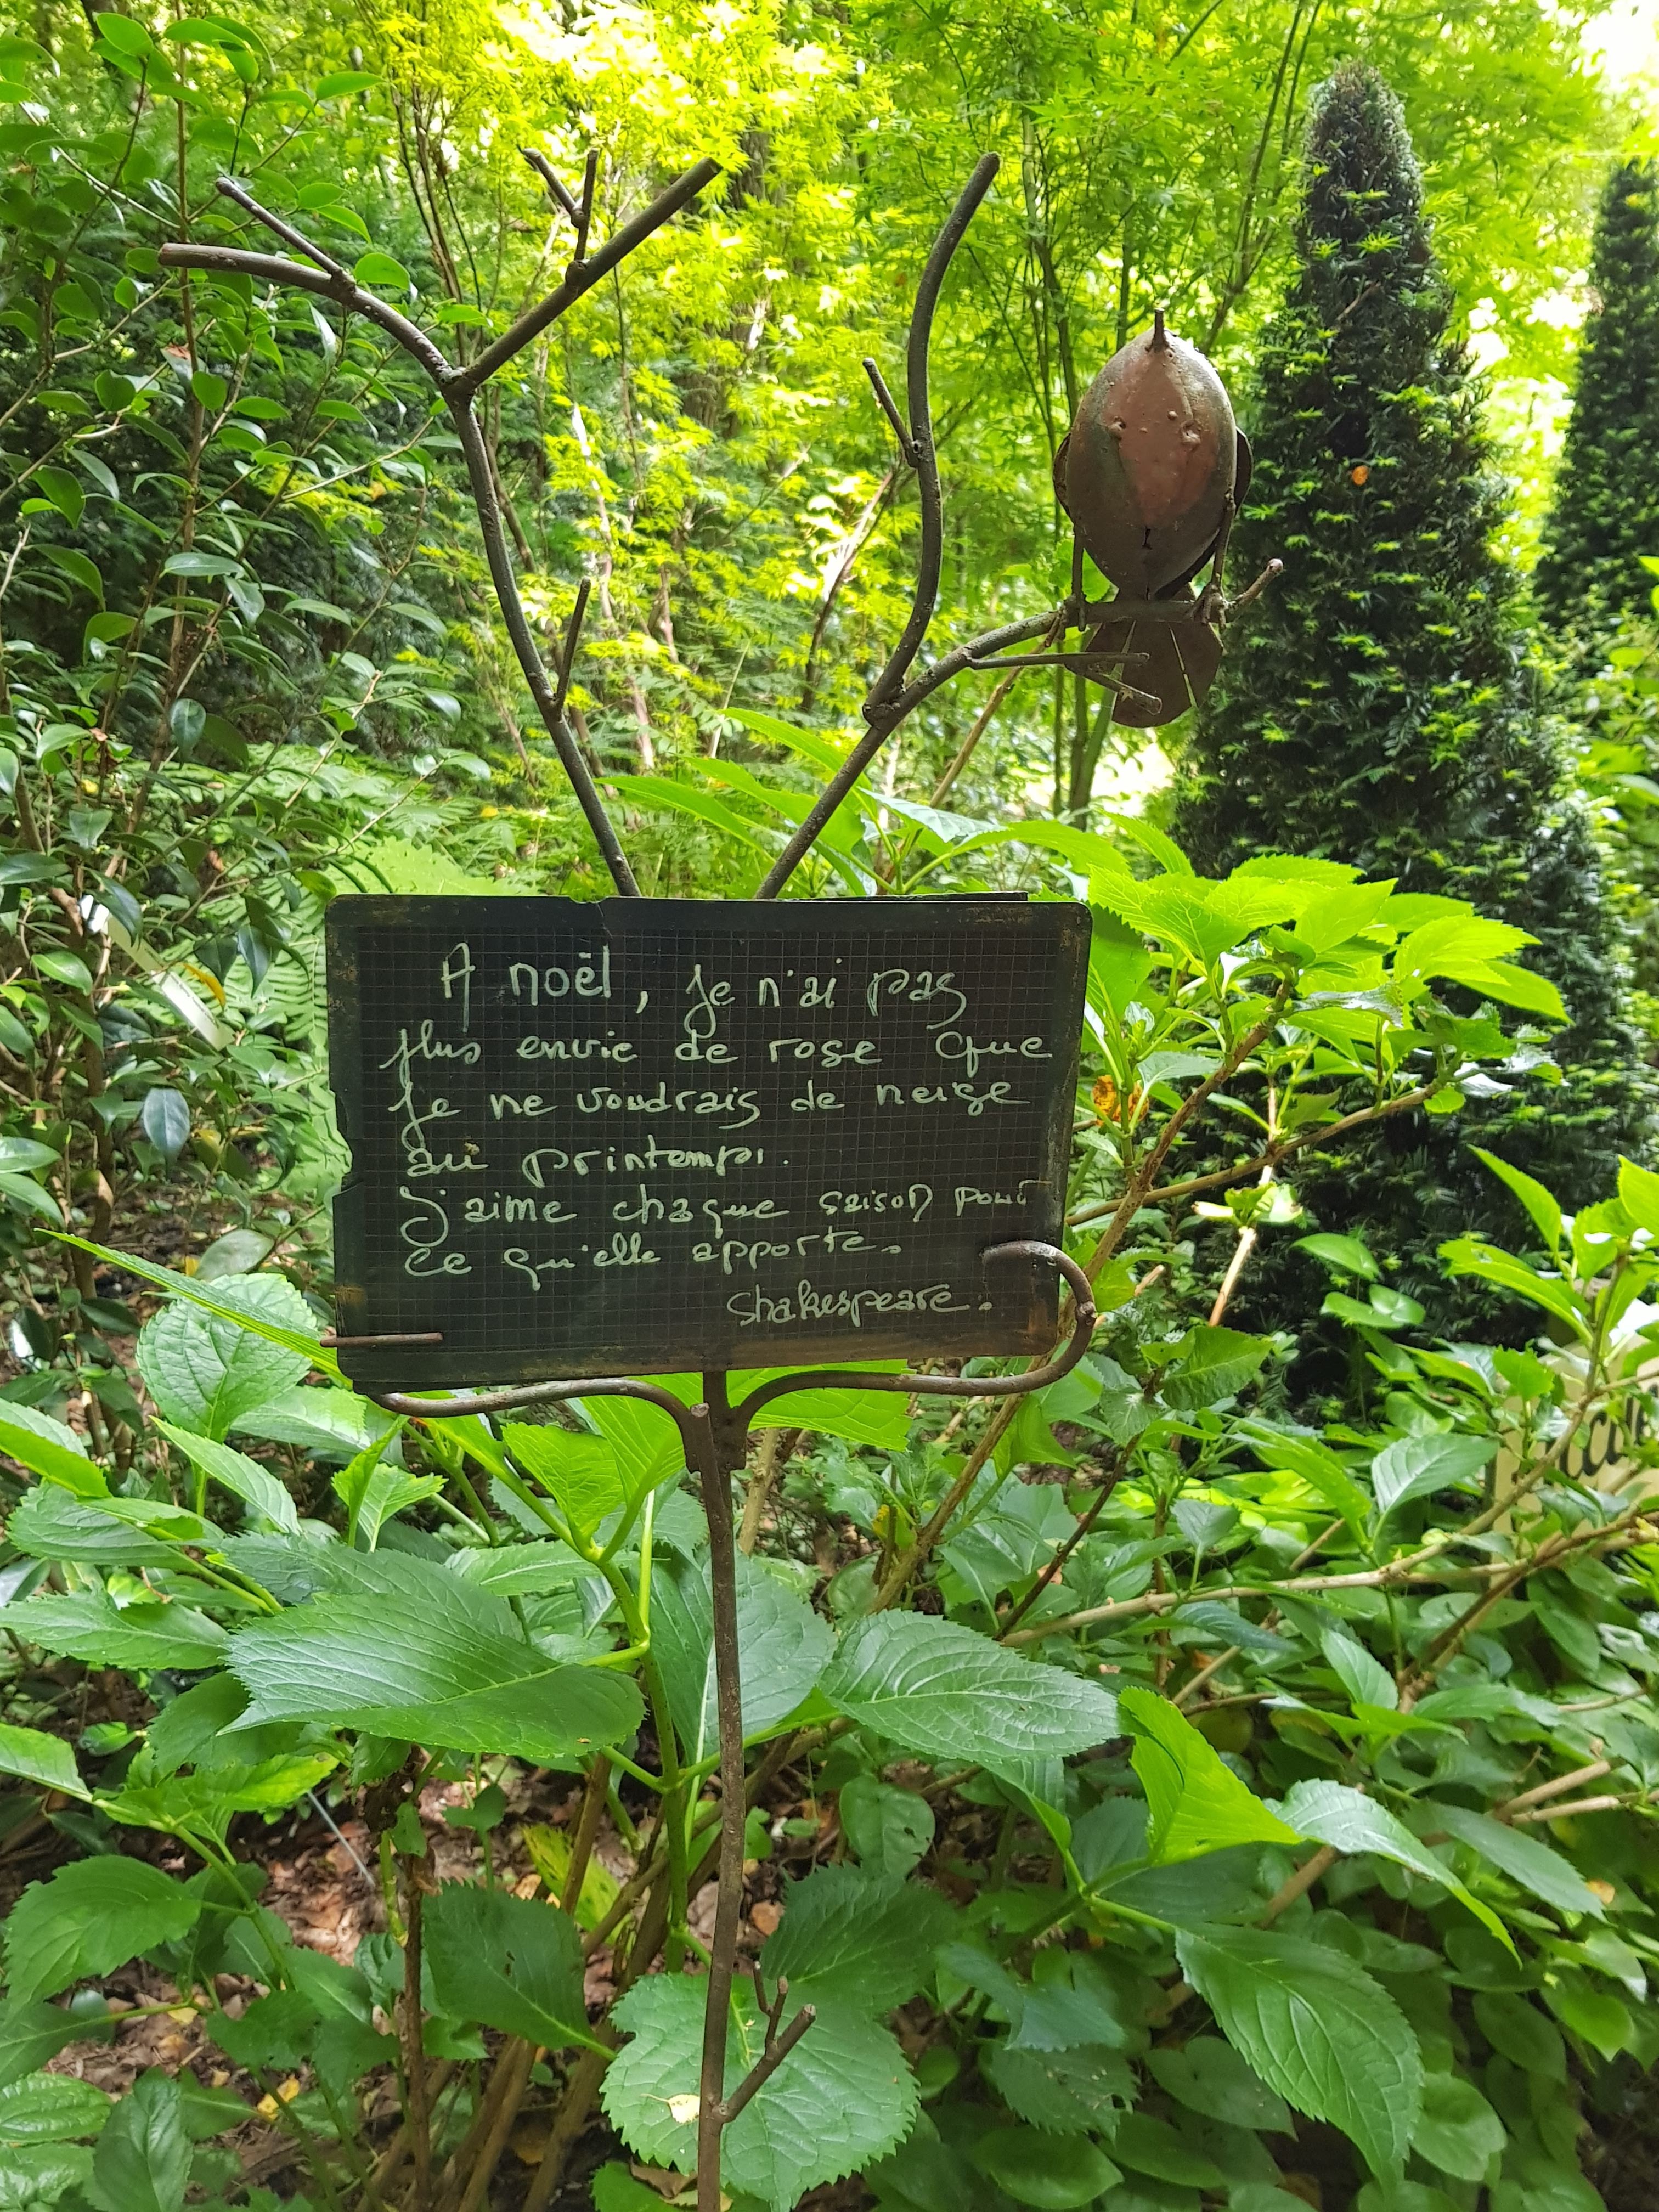 A noël, je n'ai pas
plus envie de rose que
je ne voudrais de neige
au printemps.
J'aime chaque saison pour
ce qu'elle apporte.
Shakespeare.